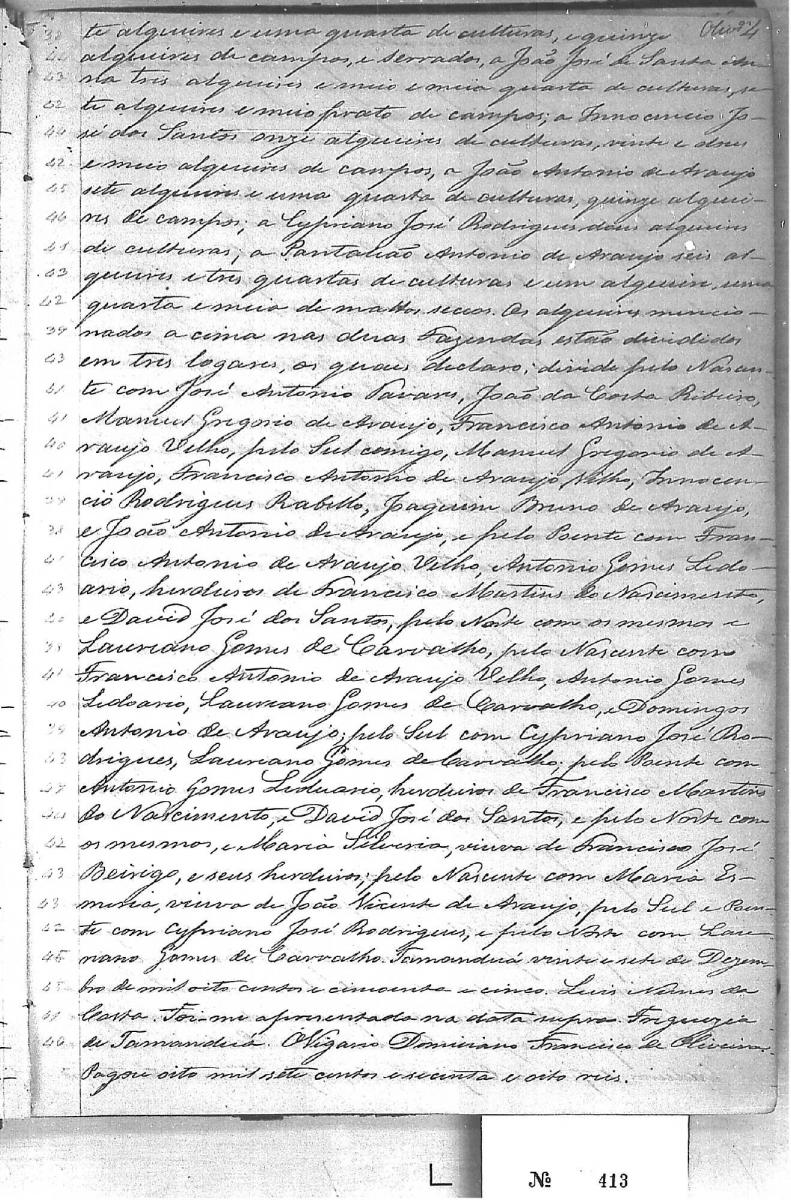 Oliv.ra 4
38 te alqueires e uma quarta de culturas, e quinze
alqueires de campos, e serrados, a João José de Santa An-
43 na tres alqueires e meio e meia quarta de culturas, se-
42 te alqueires e meio prato de campos; a Innocencio Jo-
40 sé dos Santos onze alqueires de culturas, vinte e dous
42 e meio alqueires de campos, a João Antonio de Araujo
45 sete alqueires e uma quarta de culturas, quinze alquei-
46 res de campos; a Cypriano José Rodrigues dous alqueires
41 de culturas; a Pantalião Antonio de Araujo seis al-
43 queires e tres quartas de culturas e um alqueire, uma
42 quarta e meia de mattos seccos. Os alqueires muncio-
39 nados a cima nas duas Fazendas estão divididos
43 em tres logares, os quaes declaro; divide pelo Nascen-
41 te com José Antonio Tavares, João da Costa Ribeiro,
41 Manuel Gregorio de Araujo, Francisco Antonio de A-
40 raujo Velho, pelo Sul comigo, Manuel Gregorio de A-
41 raujo, Francisco Antonio de Araujo Velho, Innocen-
39 cio Rodrigues Rabello, Joaquim Bruno de Araujo,
38 e João Antonio de Araujo, e pelo Poente com Fran-
41 cisco Antonio de Araujo Velho, Antonio Gomes Ledo-
43 ario, herdeiros de Francisco Martins do Nascimento,
e David José dos Santos, pelo Norte com os mesmos e
39 Laureano Gomes de Carvalho, pelo Nascente com
41 Francisco Antonio de Araujo Velho, Antonio Gomes
40 Ledoario, Laureano Gomes de Carvalho, e Domingos
39 Antonio de Araujo; pelo Sul com Cypriano José Ro-
43 drigues, Laureano Gomes de Carvalho; pelo Poente com
47 Antonio Gomes Leduario, herdeiros de Francisco Martins
do Nascimento, e David José dos Santos, e pelo Norte com
42 os mesmos, e Maria Silveria, viuva de Francisco José
43 Beirigo, e seus herdeiros; pelo Nascente com Maria Es-
43 meria, viuva de João Vicente de Araujo, pelo Sul e Poen-
42 te com Cypriano José Rodrigues, e pelo Norte com Lau-
45 riano Gomes de Carvalho. Tamanduá vinte e sete de Dezem-
45 bro de mil oito centos e cincoenta e cinco. Luis Nunes da
41 Costa. Foi-me apresentada na data supra. Freguezia
40 de Tamanduá. O Vigario Domiciano Francisco de Oliveira.
Pagou oito mil sete centos e secenta e oito reis.
Nº 413